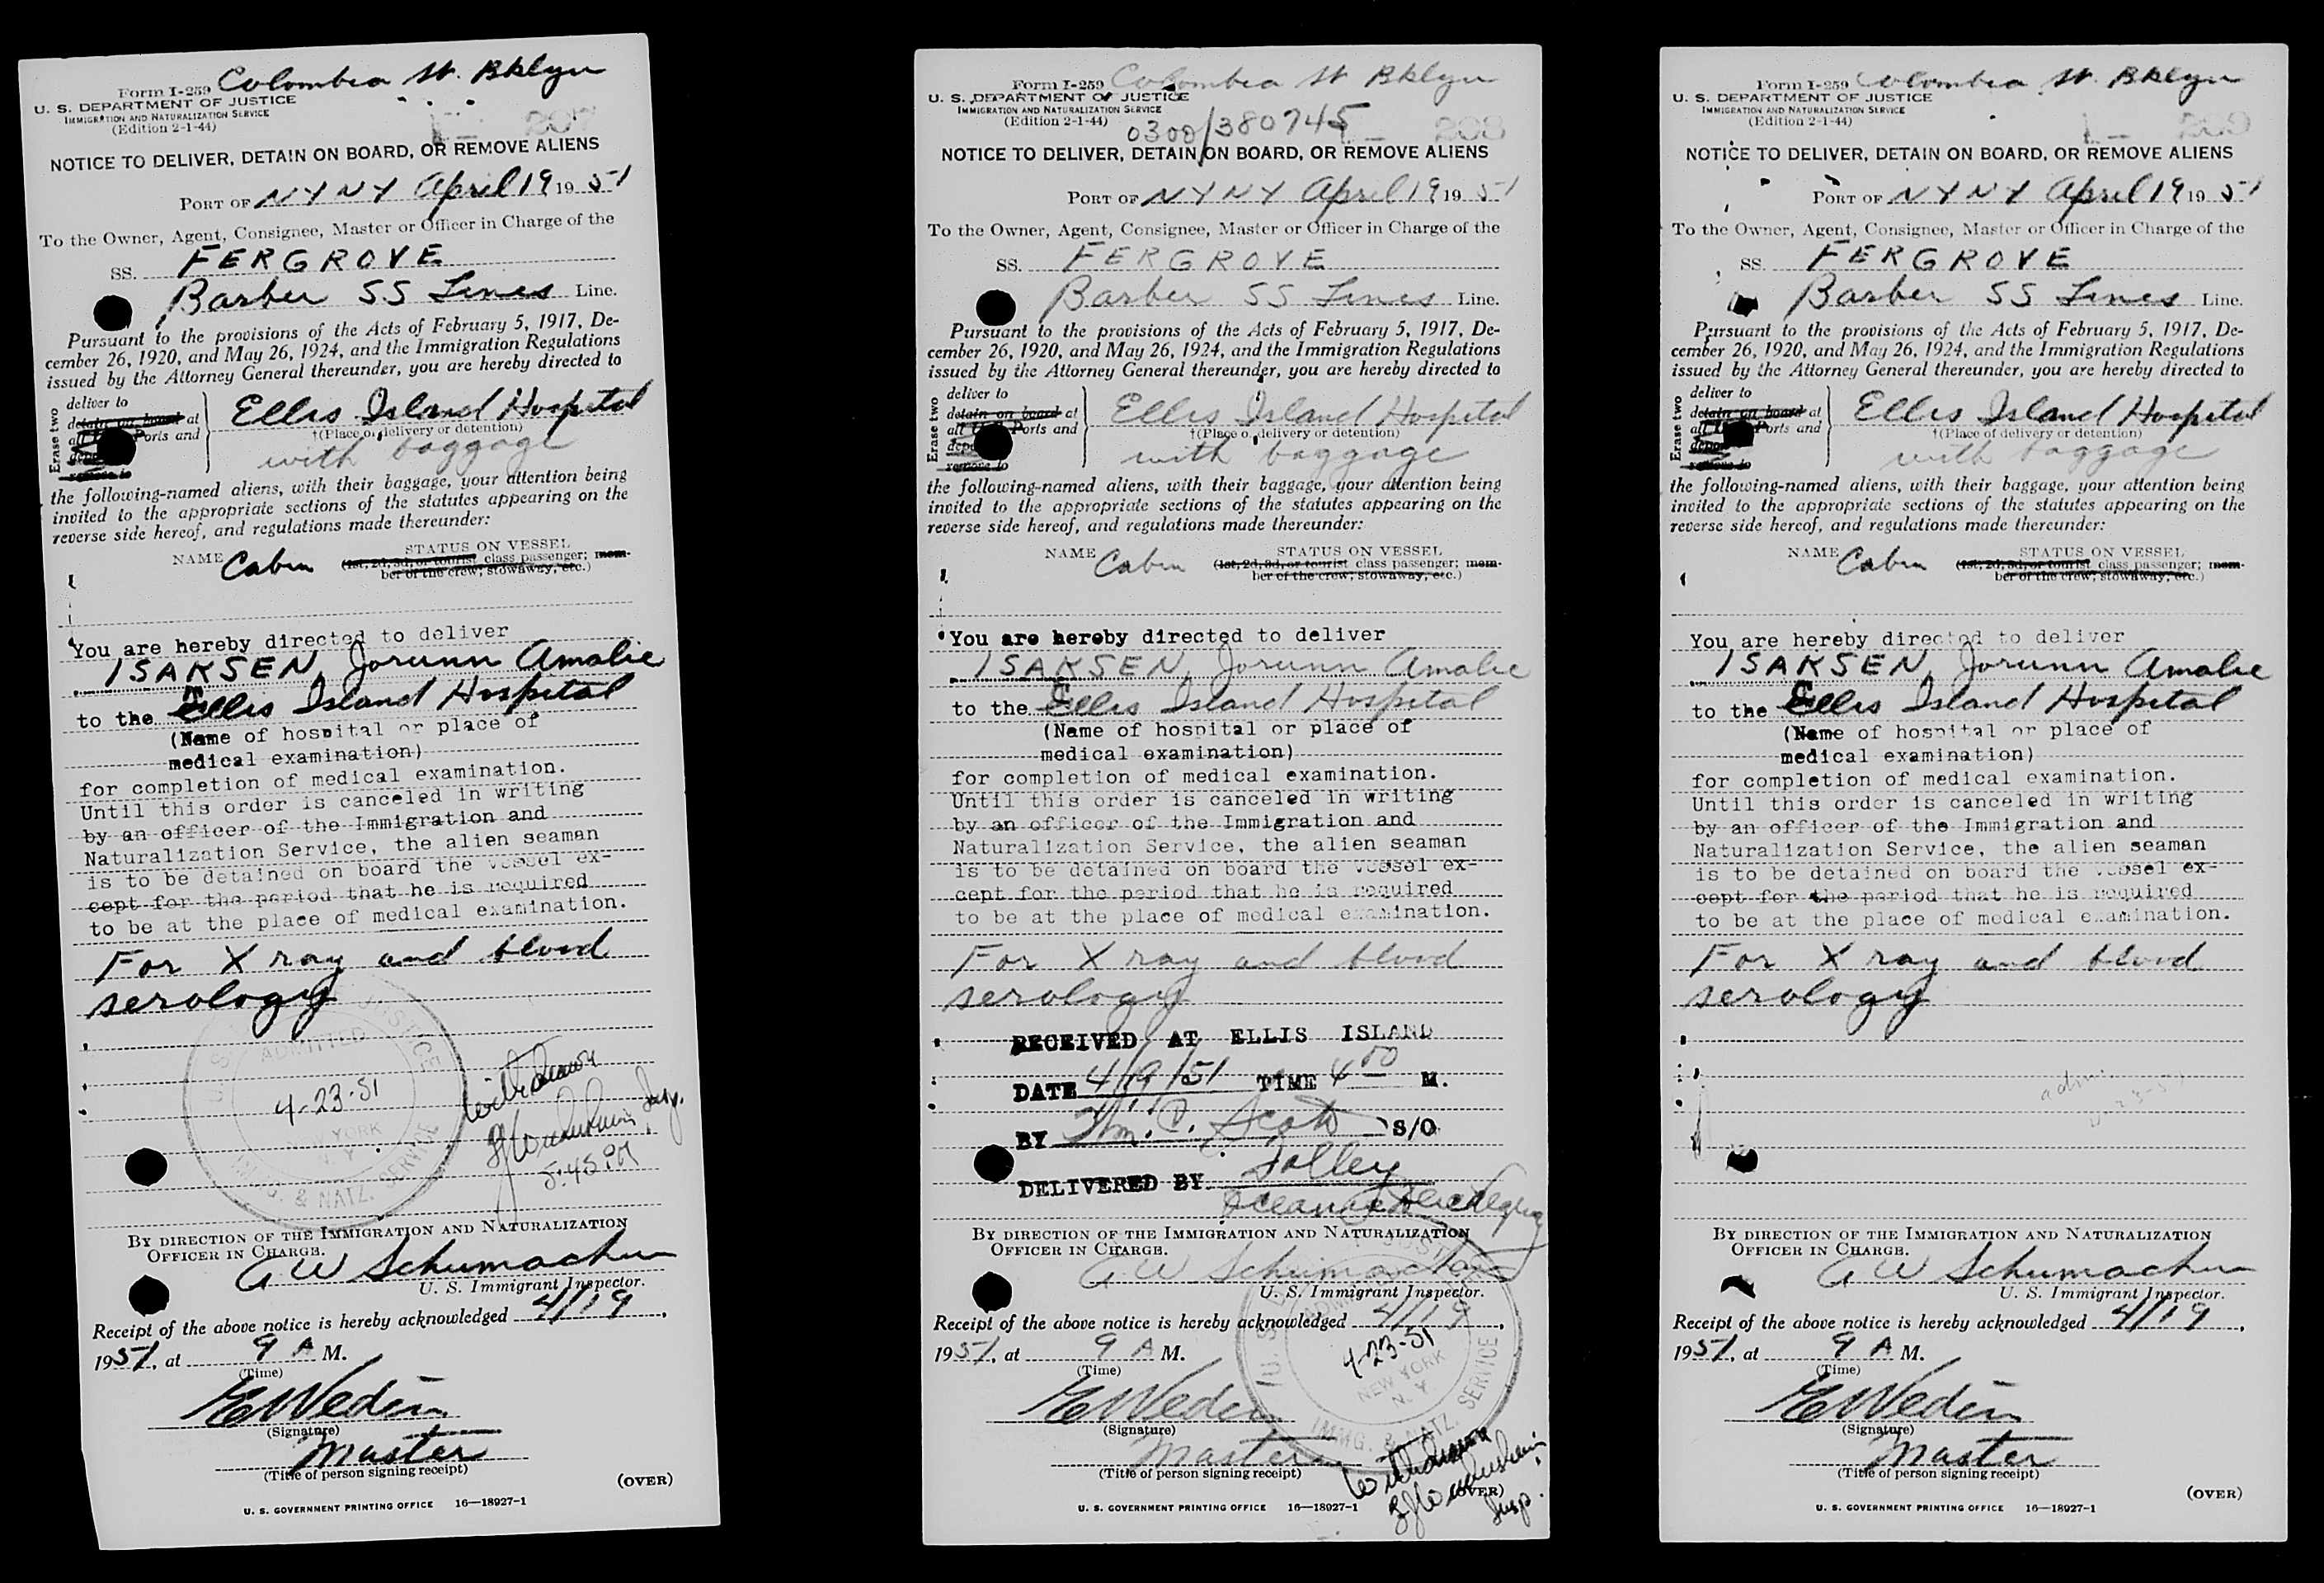 Form I-259 Colombia St. Bklyn
U. S. DEPARTMENT OF JUSTICE
IMMIGRATION AND NATURALIZATION SERVICE
(Edition 2-1-44)
207
NOTICE TO DELIVER, DETAIN ON BOARD, OR REMOVE ALIENS
PORT OF NYNY April 19 1951
To the Owner, Agent, Consignee, Master or Officer in Charge of the
SS. FERGROVE
Barber SS Lines Line.
Pursuant to the provisions of the Acts of February 5, 1917, De-
cember 26, 1920, and May 26, 1924, and the Immigration Regulations
issued by the Attorney General thereunder, you are hereby directed to
Erase two
deliver to
detain on board at
all Ports and
remove to
Ellis Island Hospital
†(Place of delivery or detention)
with baggage
the following-named aliens, with their baggage, your attention being
invited to the appropriate sections of the statutes appearing on the
reverse side hereof, and regulations made thereunder:
NAME Cabin STATUS ON VESSEL
(1st, 2d, 3d, or tourist class passenger; mem-
ber of the crew; stowaway, etc.)
You are hereby directed to deliver
ISAKSEN, Jorunn Amalie
to the Ellis Island Hospital
(Name of hospital or place of
medical examination)
for completion of medical examination.
Until this order is canceled in writing
by an officer of the Immigration and
Naturalization Service, the alien seaman
is to be detained on board the vessel ex-
cept for the period that he is required
to be at the place of medical examination.
For X ray and blood
serology
U. S. JUSTICE
ADMITTED
4-23-51
NEW YORK
N. Y.
IMMG. & NATZ. SERVICE
Withdrawn
Insp.
5:45 PM
BY DIRECTION OF THE IMMIGRATION AND NATURALIZATION
OFFICER IN CHARGE.
G W Schumacher
U. S. Immigrant Inspector.
Receipt of the above notice is hereby acknowledged 4/19,
1951, at 9 A M.
(Time)
E Wedin
(Signature)
Master
(Title of person signing receipt)
(OVER)
U. S. GOVERNMENT PRINTING OFFICE 16—18927-1
Form I-259 Colombia St Bklyn
U. S. DEPARTMENT OF JUSTICE
IMMIGRATION AND NATURALIZATION SERVICE
(Edition 2-1-44)
0300/380745
208
NOTICE TO DELIVER, DETAIN ON BOARD, OR REMOVE ALIENS
PORT OF NYNY April 19 1951
To the Owner, Agent, Consignee, Master or Officer in Charge of the
SS. FERGROVE
Barber SS Lines Line.
Pursuant to the provisions of the Acts of February 5, 1917, De-
cember 26, 1920, and May 26, 1924, and the Immigration Regulations
issued by the Attorney General thereunder, you are hereby directed to
Erase two
deliver to
detain on board at
all Ports and
remove to
Ellis Island Hospital
†(Place of delivery or detention)
with baggage
the following-named aliens, with their baggage, your attention being
invited to the appropriate sections of the statutes appearing on the
reverse side hereof, and regulations made thereunder:
NAME Cabin STATUS ON VESSEL
(1st, 2d, 3d, or tourist class passenger; mem-
ber of the crew; stowaway, etc.)
You are hereby directed to deliver
ISAKSEN, Jorunn Amalie
to the Ellis Island Hospital
(Name of hospital or place of
medical examination)
for completion of medical examination.
Until this order is canceled in writing
by an officer of the Immigration and
Naturalization Service, the alien seaman
is to be detained on board the vessel ex-
cept for the period that he is required
to be at the place of medical examination.
For X ray and blood
serology
RECEIVED AT ELLIS ISLAND
DATE 4/19/51 TIME 4 50 M.
BY Wm. C. Scott S/O
DELIVERED BY Tolley
BY DIRECTION OF THE IMMIGRATION AND NATURALIZATION
OFFICER IN CHARGE.
G W Schumacher
U. S. Immigrant Inspector.
Receipt of the above notice is hereby acknowledged 4/19,
1951, at 9 A M.
(Time)
E Wedin
(Signature)
Master
(Title of person signing receipt)
ADMITTED
4-23-51
NEW YORK
N. Y.
IMMG. & NATZ. SERVICE
Withdrawn
Insp.
(OVER)
U. S. GOVERNMENT PRINTING OFFICE 16—18927-1
Form I-259 Colombia St. Bklyn
U. S. DEPARTMENT OF JUSTICE
IMMIGRATION AND NATURALIZATION SERVICE
(Edition 2-1-44)
209
NOTICE TO DELIVER, DETAIN ON BOARD, OR REMOVE ALIENS
PORT OF NYNY April 19 1951
To the Owner, Agent, Consignee, Master or Officer in Charge of the
SS. FERGROVE
Barber SS Lines Line.
Pursuant to the provisions of the Acts of February 5, 1917, De-
cember 26, 1920, and May 26, 1924, and the Immigration Regulations
issued by the Attorney General thereunder, you are hereby directed to
Erase two
deliver to
detain on board at
all Ports and
remove to
Ellis Island Hospital
†(Place of delivery or detention)
with baggage
the following-named aliens, with their baggage, your attention being
invited to the appropriate sections of the statutes appearing on the
reverse side hereof, and regulations made thereunder:
NAME Cabin STATUS ON VESSEL
(1st, 2d, 3d, or tourist class passenger; mem-
ber of the crew; stowaway, etc.)
You are hereby directed to deliver
ISAKSEN, Jorunn Amalie
to the Ellis Island Hospital
(Name of hospital or place of
medical examination)
for completion of medical examination.
Until this order is canceled in writing
by an officer of the Immigration and
Naturalization Service, the alien seaman
is to be detained on board the vessel ex-
cept for the period that he is required
to be at the place of medical examination.
For X ray and blood
serology
BY DIRECTION OF THE IMMIGRATION AND NATURALIZATION
OFFICER IN CHARGE.
G W Schumacher
U. S. Immigrant Inspector.
Receipt of the above notice is hereby acknowledged 4/19,
1951, at 9 A M.
(Time)
E Wedin
(Signature)
Master
(Title of person signing receipt)
(OVER)
U. S. GOVERNMENT PRINTING OFFICE 16—18927-1